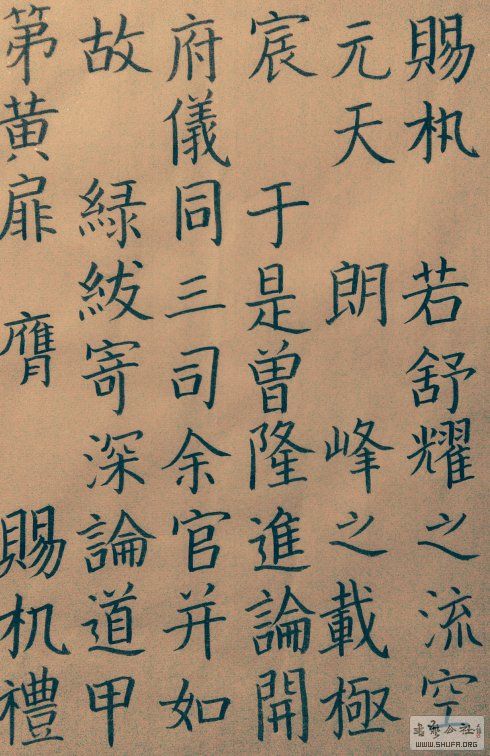 賜若舒耀之流空
元天朗峰之載極
宸于是曽隆進論開
府儀同三司余官并如
故緑紱寄深論道甲
第黄扉膺賜机禮
WWW.SHUFA.ORG